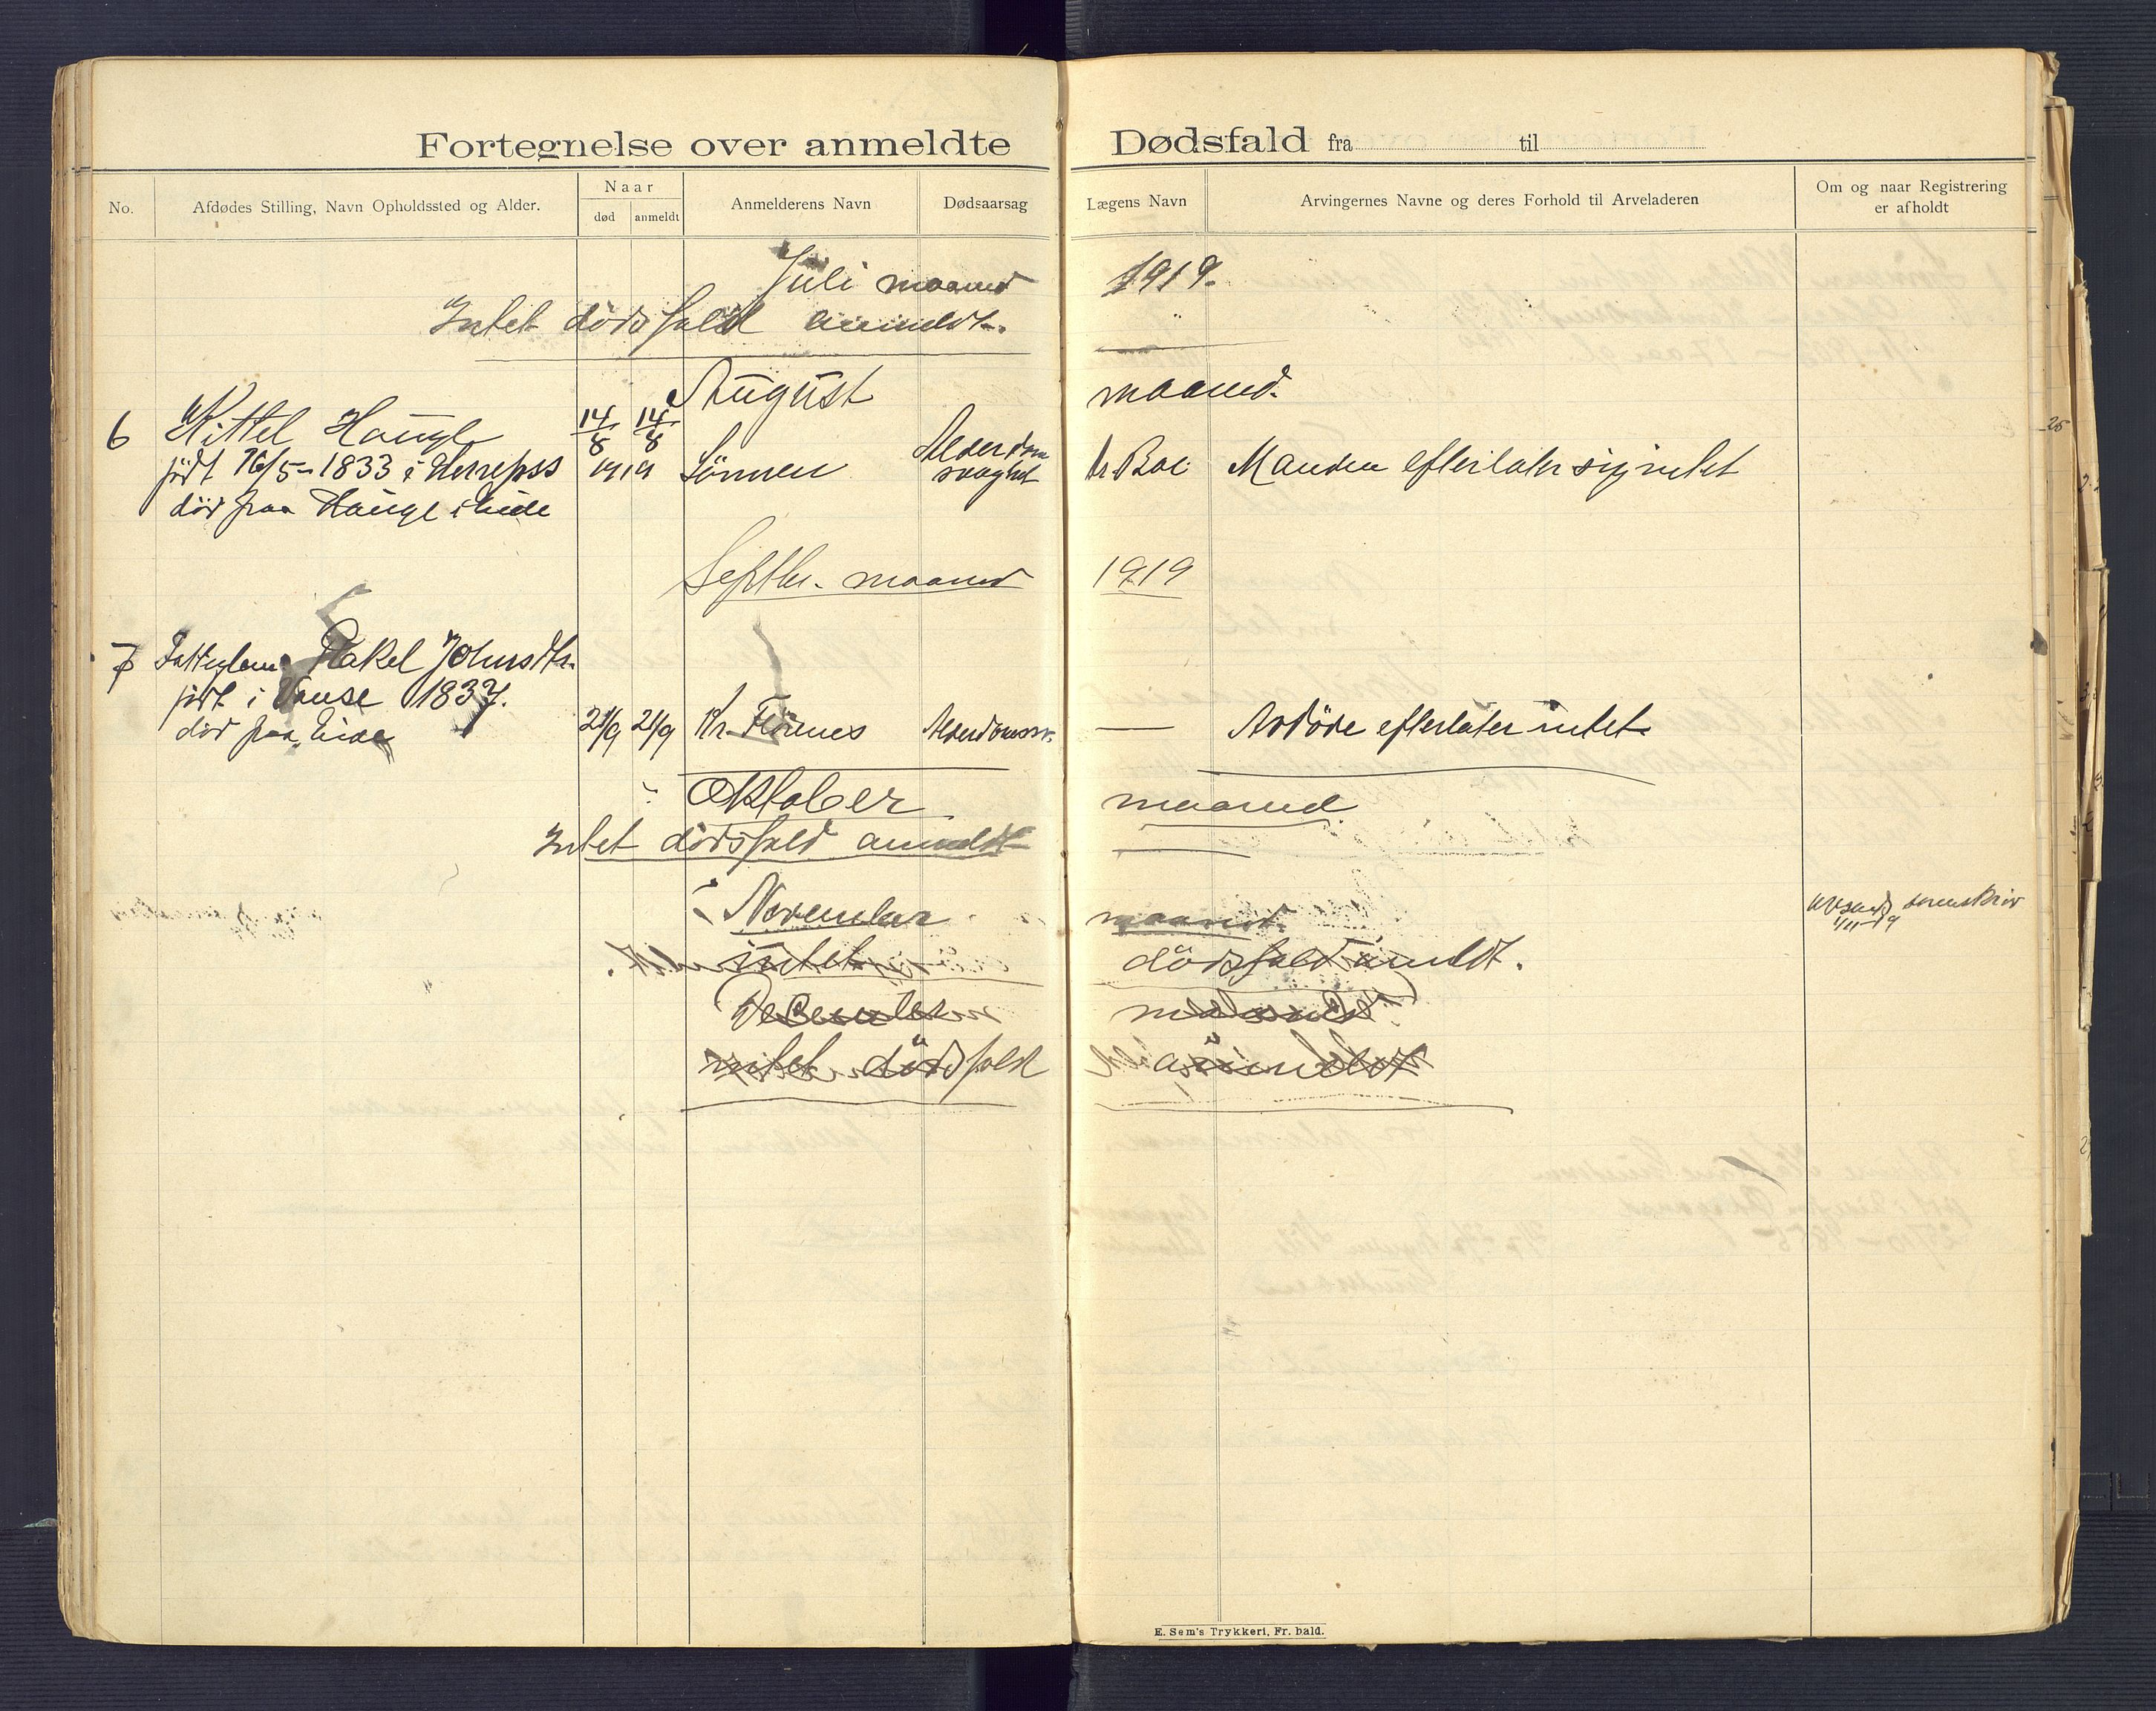 Fortegnelse over anmeldte Dødsfald fra til
No.
Afdødes Stilling, Navn Opholdssted og Alder.
Naar
død
anmeldt
Anmelderens Navn
Dødsaarsag
Lægens Navn
Arvingernes Navne og deres Forhold til Arveladeren
Om og naar Registrering
er afholdt
Juli maaned 1919.
Intet dödsfald anmeldt.
August maaned.
6 Kittel Hauge 14/8 14/8 Alderdom
födt 16/5-1833 i 1919 Sönnen svaghet dr. Boe Manden efterlater sig intet
död paa Hauge i Eide
Septbr. maaned 1919
7 Fattiglem Rakel Johnsdtr.
födt i Vanse 1837.
död paa Eide 21/9 21/9 Kr. Alderdomssv. — Avdöde efterlater intet.
Oktober maaned
Intet dödsfald anmeldt
November maaned.
avsendt sorenskriv
1/11-19
intet dödsfald anmeldt.
December maaned
intet dödsfald anmeldt
E. Sem's Trykkeri, Fr. hald.